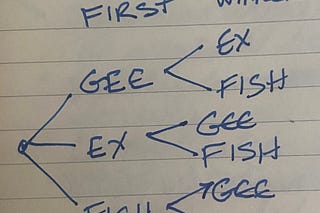 FIRST
EX
GEE
FISH
GEE
EX
FISH
GEE
FISH